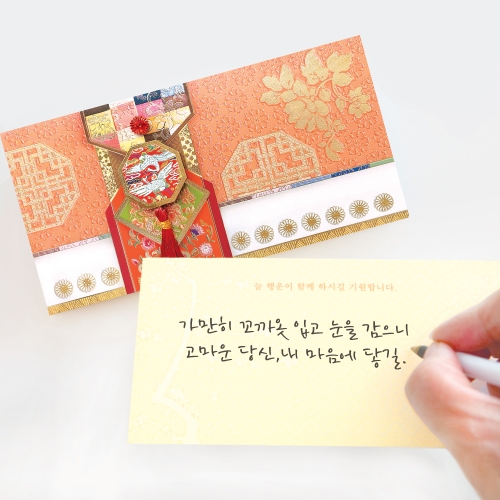 늘 행운이 함께 하시길 기원합니다.
가만히 꼬까옷 입고 눈을 감으니
고마운 당신,내 마음에 닿길.